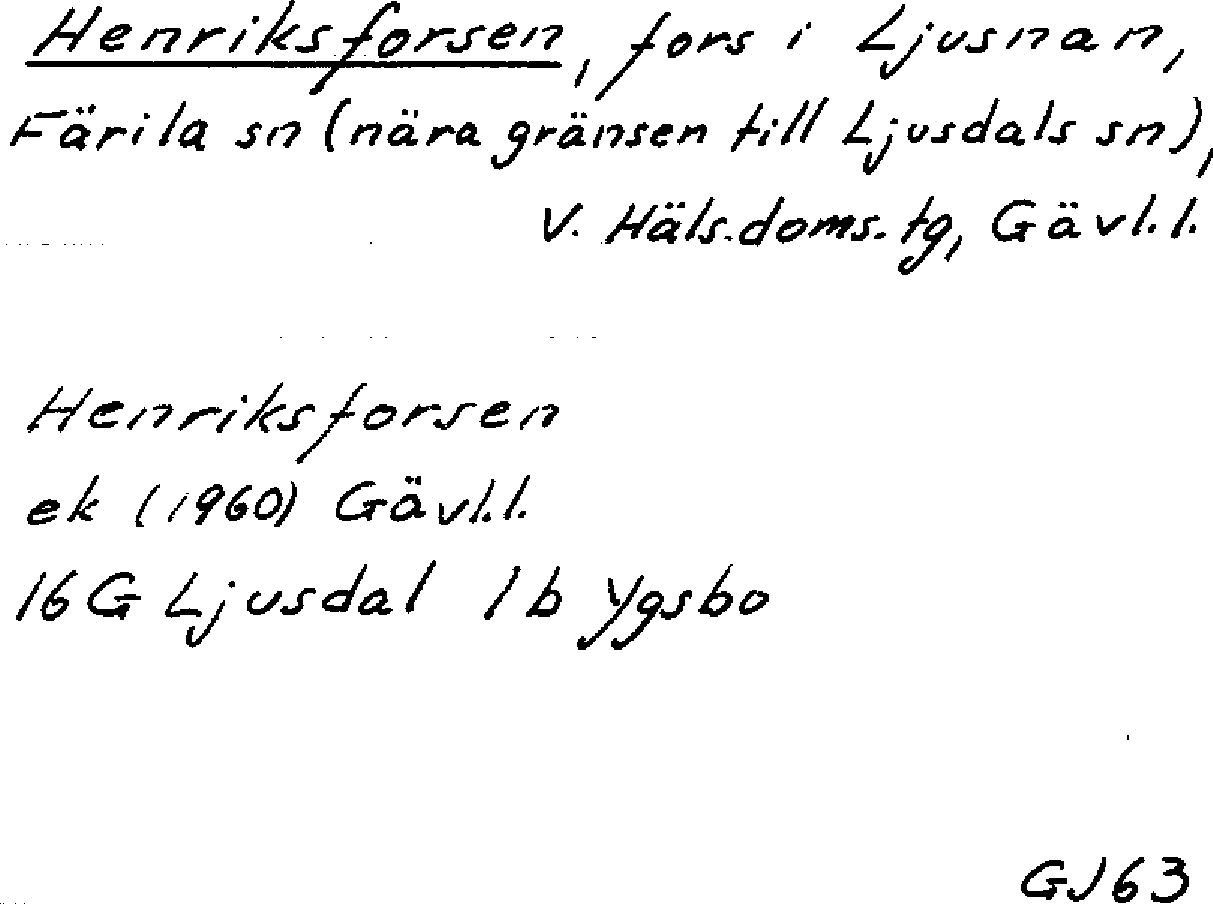 Henriksforsen, fors i Ljusnan,
Färila sn (nära gränsen till Ljusdals sn),
V. Häls.doms.tg, Gävl.l.
Henriksforsen
ek (1960) Gävl.l.
16G Ljusdal 1b Ygsbo
GJ63